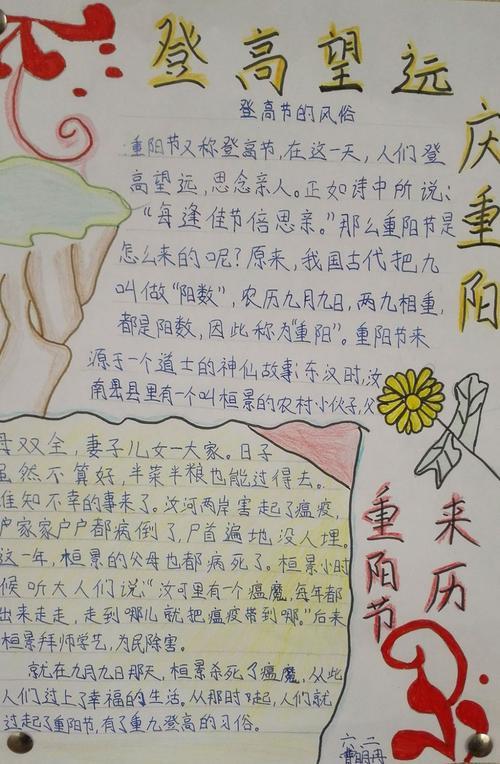 登高望远
庆重阳
登高节的风俗
重阳节又称登高节,在这一天,人们登
高望远,思念亲人。正如诗中所说:
“每逢佳节倍思亲。”那么重阳节是
怎么来的呢?原来,我国古代把九
叫做“阳数”,农历九月九日,两九相重,
都是阳数,因此称为“重阳”。重阳节来
源于一个道士的神仙故事:东汉时,汝
南县县里有一个叫桓景的农村小伙子,父
母双全,妻子儿女一大家。日子
虽然不算好,半菜半粮也能过得去。
谁知不幸的事来了。汝河两岸害起了瘟疫,
户家家户户都病倒了,尸首遍地,没人埋。
这一年,桓景的父母也都病死了。桓景小时
候听大人们说:“汝河里有一个瘟魔,每年都
出来走走,走到哪儿就把瘟疫带到哪。”后来
桓景拜师学艺,为民除害。
就在九月九日那天,桓景杀死了瘟魔,从此
人们过上了幸福的生活。从那时起,人们就
过起了重阳节,有了重九登高的习俗。
重阳节
来历
六.二